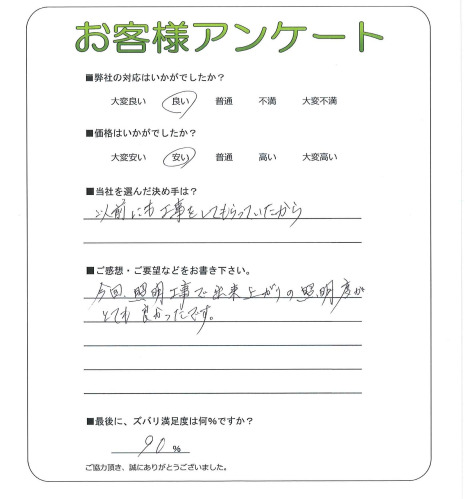 お客様アンケート
■弊社の対応はいかがでしたか?
大変良い 良い 普通 不満 大変不満
■価格はいかがでしたか?
大変安い 安い 普通 高い 大変高い
■当社を選んだ決め手は?
以前にも工事をしてもらっていたから
■ご感想・ご要望などをお書き下さい。
今回、照明工事で出来上がりの照明度が
とても良かったです。
■最後に、ズバリ満足度は何%ですか?
90%
ご協力頂き、誠にありがとうございました。